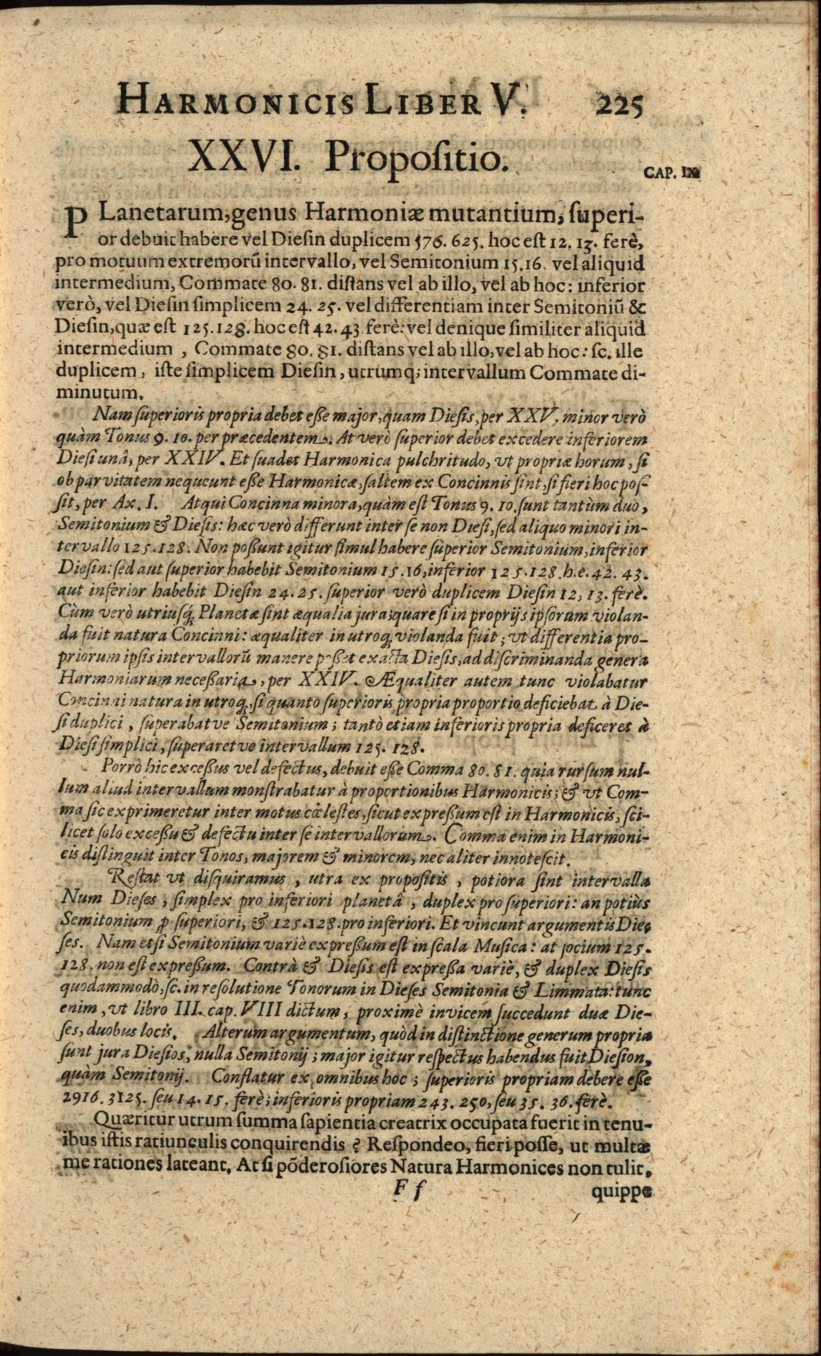 HARMONICIS LIBER V. 225
XXVI. Propositio.
CAP. IX
PLanetarum, genus Harmoniæ mutantium, superi-
or debuit habere vel Diesin duplicem 576. 625. hoc est 12. 13. ferè,
pro motuum extremorũ intervallo, vel Semitonium 15. 16. vel aliquid
intermedium, Commate 80. 81. distans vel ab illo, vel ab hoc: inferior
verò, vel Diesin simplicem 24. 25. vel differentiam inter Semitoniũ &
Diesin, quæ est 125. 128. hoc est 42. 43. ferè: vel denique similiter aliquid
intermedium, Commate 80. 81. distans vel ab illo, vel ab hoc: sc. ille
duplicem, iste simplicem Diesin, utrumq; intervallum Commate di-
minutum.
Nam superioris propria debet eße major, quam Diesis, per XXV. minor verò
quàm Tonus 9. 10. per præcedentem. At verò superior debet excedere inferiorem
Diesi unâ, per XXIV. Et suadet Harmonica pulchritudo, vt propriæ horum, si
ob parvitatem nequeunt eße Harmonicæ, saltem ex Concinnis sint, si fieri hoc pos-
sit, per Ax. I. Atqui Concinna minora, quàm est Tonus 9. 10. sunt tantùm duo,
Semitonium & Diesis: hæc verò differunt inter se non Diesi, sed aliquo minori in-
tervallo 125. 128. Non poßunt igitur simul habere superior Semitonium, inferior
Diesin: sed aut superior habebit Semitonium 15. 16, inferior 125. 128. h. e. 42. 43.
aut inferior habebit Diesin 24. 25. superior verò duplicem Diesin 12, 13. ferè.
Cùm verò utriusq; Planetæ sint æqualia jura; quare si in proprijs ipsorum violan-
da fuit natura Concinni: æqualiter in utroq; violanda fuit; vt differentia pro-
priorum ipsis intervallorũ manere poßet exacta Diesis, ad discriminanda genera
Harmoniarum neceßaria, per XXIV. Æqualiter autem tunc violabatur
Concinni natura in utroq; si quanto superioris propria proportio deficiebat à Die-
si duplici, superabatve Semitonium; tantò etiam inferioris propria deficeret à
Diesi simplici, superaretve intervallum 125. 128.
Porrò hic exceßus vel defectus, debuit eße Comma 80. 81. quia rursum nul-
lum aliud intervallum monstrabatur à proportionibus Harmonicis; & vt Com-
ma sic exprimeretur inter motus cœlestes, sicut expreßum est in Harmonicis, sci-
licet solo exceßu & defectu inter se intervallorum. Comma enim in Harmoni-
cis distinguit inter Tonos, majorem & minorem, nec aliter innotescit.
Restat vt disquiramus, utra ex propositis, potiora sint intervalla
Num Dieses, simplex pro inferiori planetâ, duplex pro superiori: an potiùs
Semitonium ꝓ superiori, & 125. 128. pro inferiori. Et vincunt argumentis Die-
ses. Nam etsi Semitonium variè expreßum est in scala Musica: at socium 125.
128. non est expreßum. Contrà & Diesis est expreßa variè, & duplex Diesis
quodammodò, sc. in resolutione Tonorum in Dieses Semitonia & Limmata: tunc
enim, vt libro III. cap. VIII dictum, proximè invicem succedunt duæ Die-
ses, duobus locis. Alterum argumentum, quòd in distinctione generum propria
sunt jura Diesios, nulla Semitonij; major igitur respectus habendus fuit Diesion,
quàm Semitonij. Conflatur ex omnibus hoc; superioris propriam debere eße
2916. 3125. seu 14. 15. ferè; inferioris propriam 243. 250, seu 35. 36. ferè.
Quæritur utrum summa sapientia creatrix occupata fuerit in tenu-
ibus istis ratiunculis conquirendis? Respondeo, fieri posse, ut multæ
me rationes lateant. At si põderosiores Natura Harmonices non tulit,
F f quippe